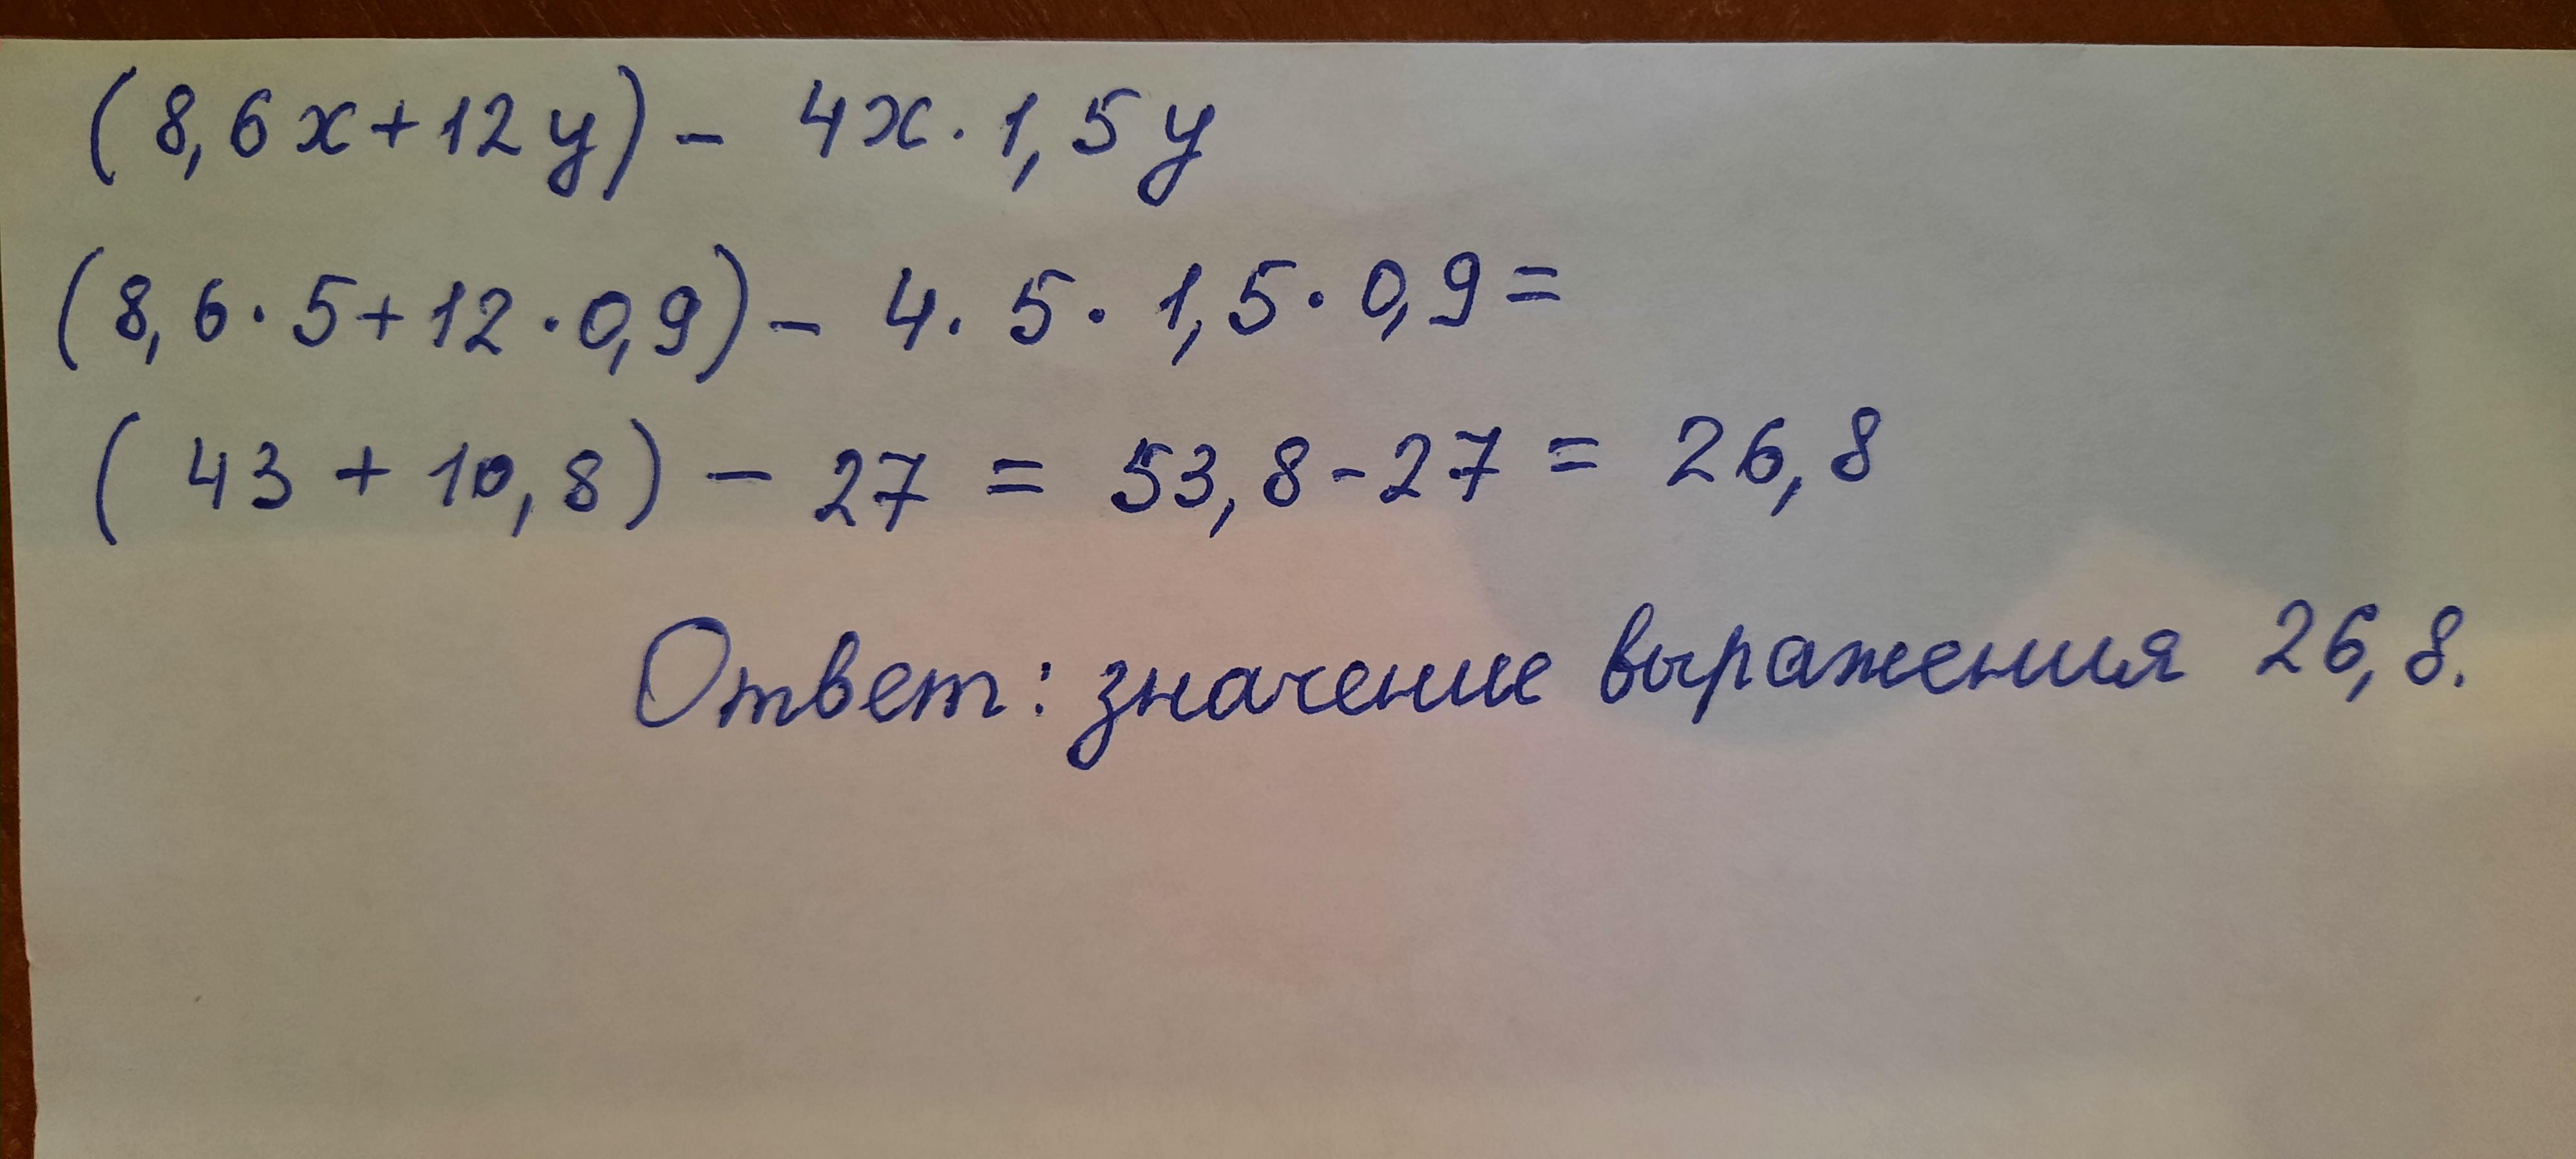 (8,6x+12y) - 4x · 1,5y
(8,6 · 5+12 · 0,9) - 4 · 5 · 1,5 · 0,9=
(43 + 10,8) - 27 = 53,8-27 = 26,8
Ответ: значение выражения 26,8.